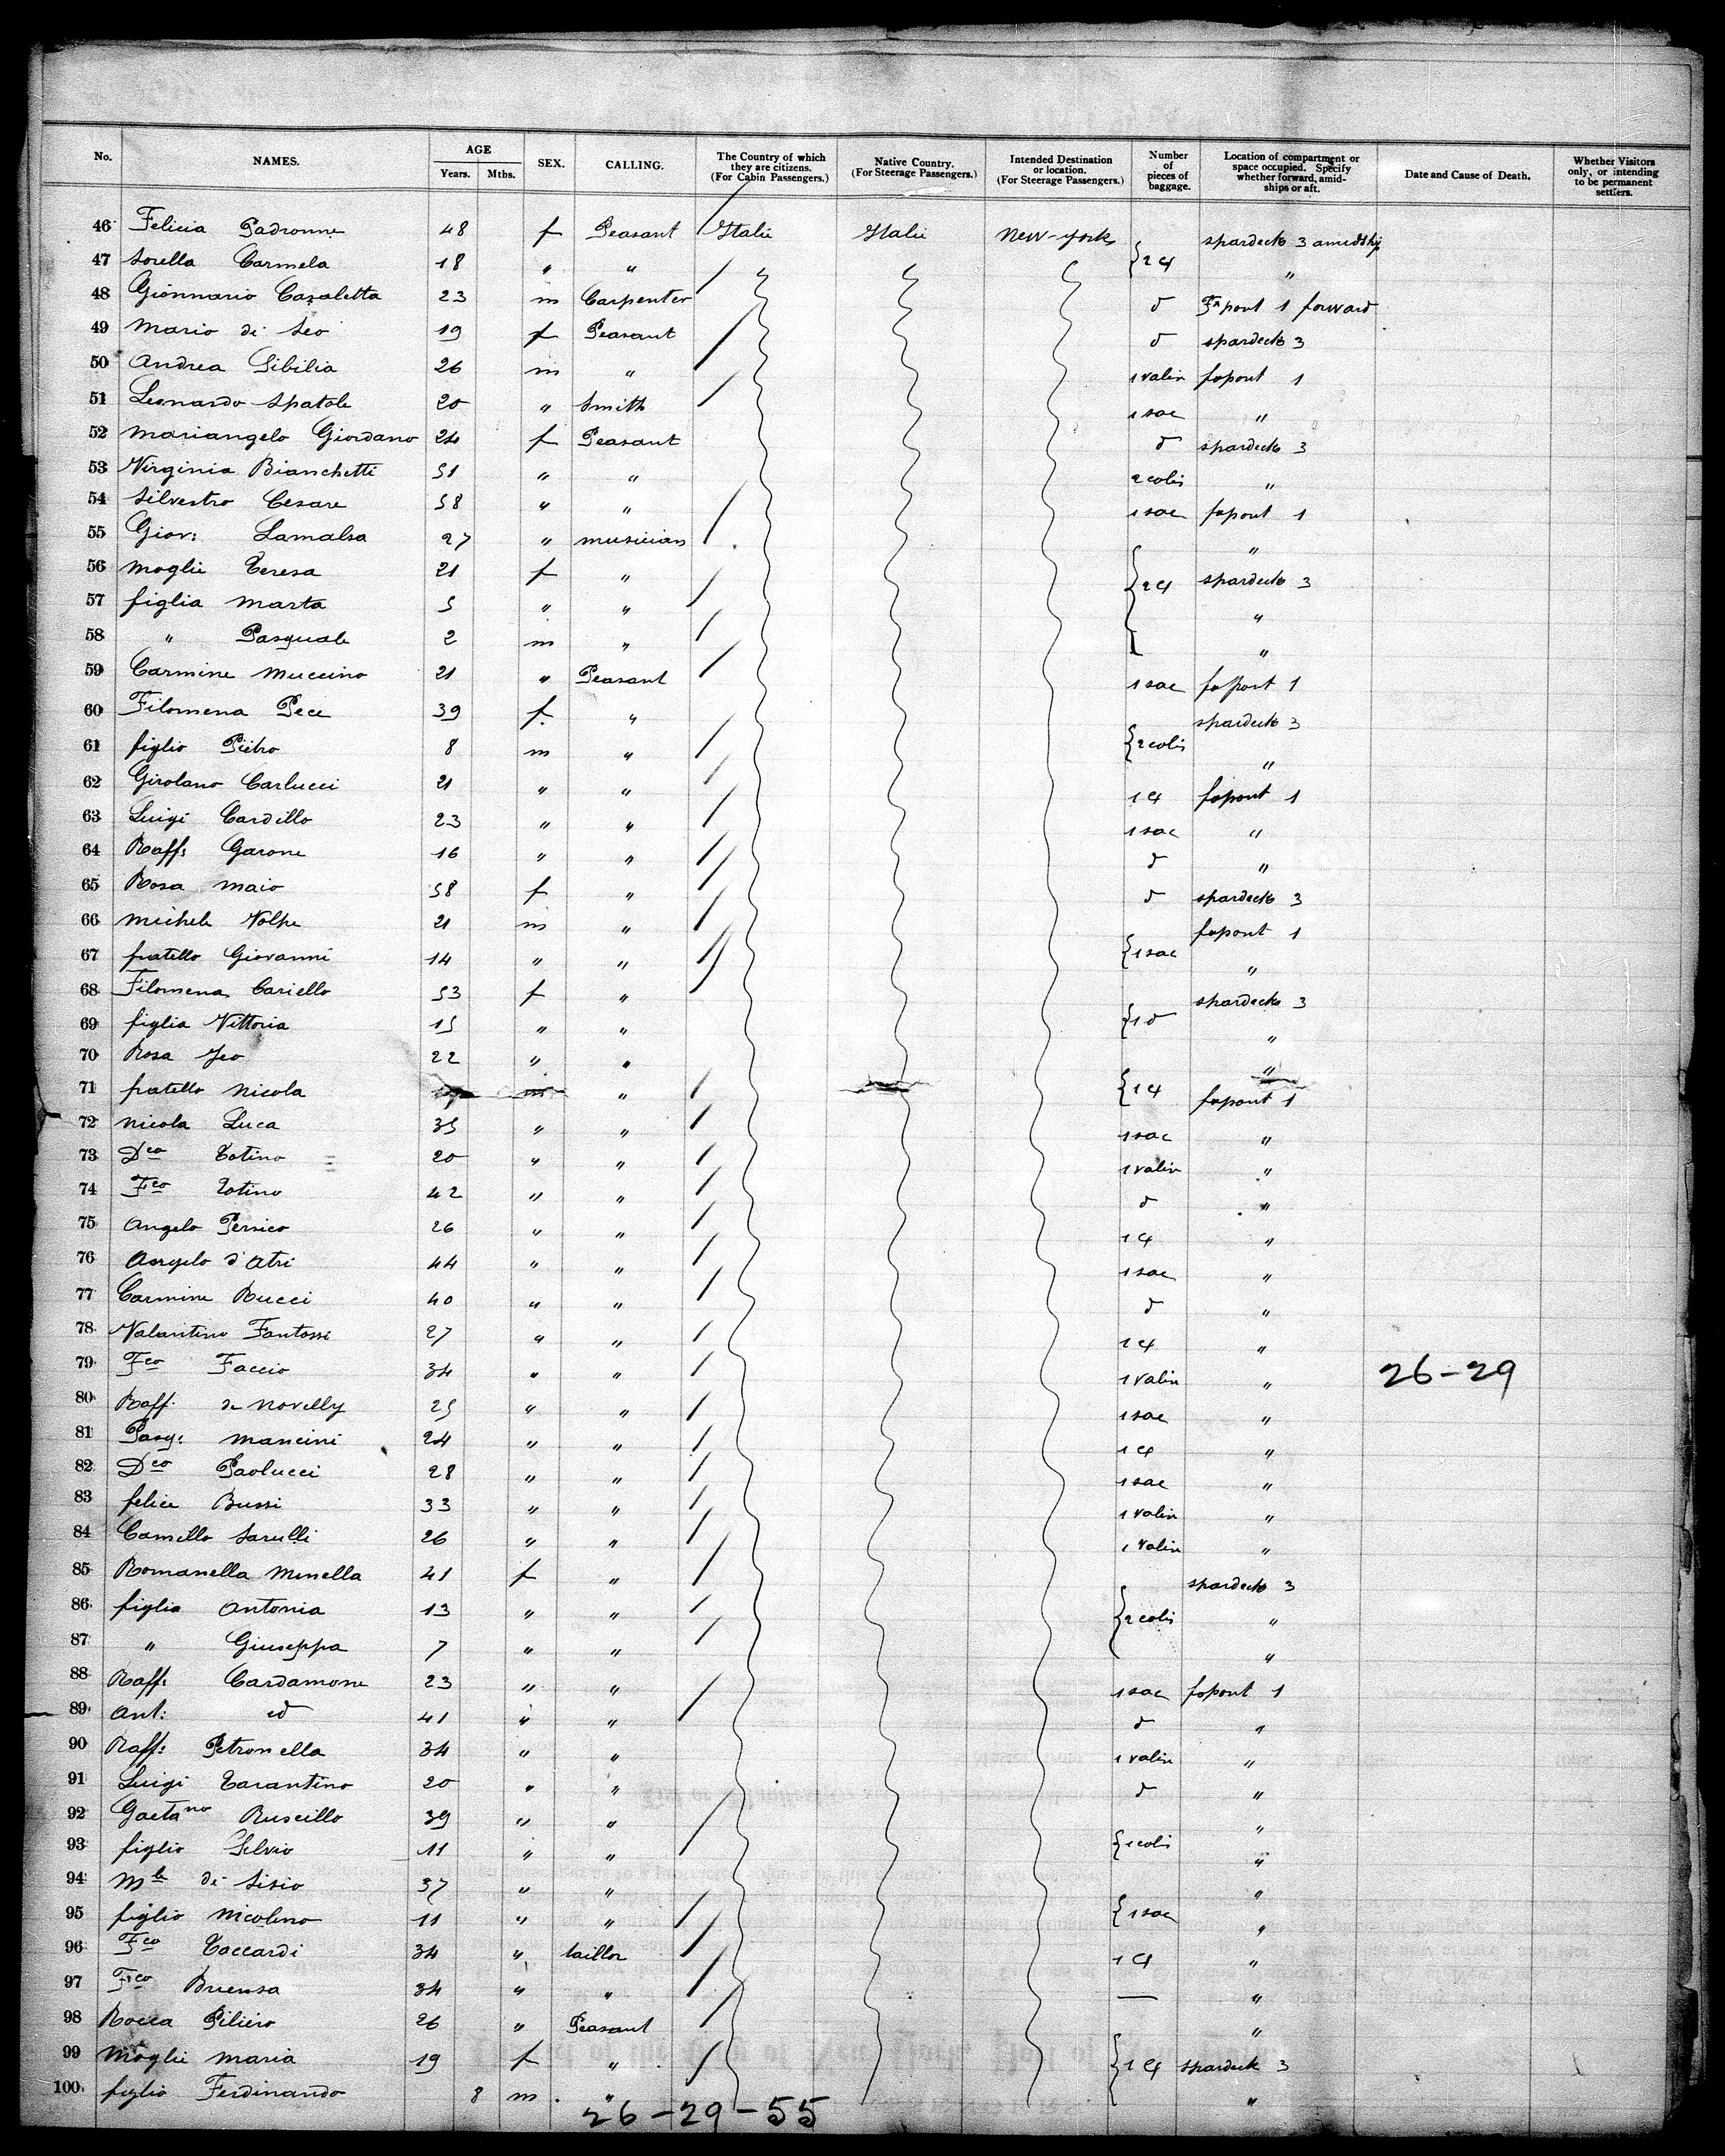 No. NAMES. AGE Years. Mths. SEX. CALLING. The Country of which they are citizens. (For Cabin Passengers.) Native Country. (For Steerage Passengers.) Intended Destination or location. (For Steerage Passengers.) Number of pieces of baggage. Location of compartment or space occupied. Specify whether forward, amidships or aft. Date and Cause of Death. Whether Visitors only, or intending to be permanent settlers.
46 Felicia Padronne 48 f Peasant Italie Italie New-York spardeck 3 amidship
47 Sorella Carmela 18 " " " 
48 Gionnario Casaletta 23 m Carpenter 1 forward
49 Mario di Leo 19 f Peasant spardeck 3
50 Andrea Sibilia 26 m " 1 valin fxpont 1
51 Leonardo Spatole 20 " Smith 1 sac "
52 Mariangelo Giordano 24 f Peasant spardeck 3
53 Virginia Bianchetti 51 " " 2 colis "
54 Silvestro Cesare 58 " " 1 sac fxpont 1
55 Giov: Lamalsa 27 " musician "
56 moglie Teresa 21 f " spardeck 3
57 figlia Marta 5 " " "
58 " Pasquale 2 m " "
59 Carmine Muccino 21 " Peasant 1 sac fxpont 1
60 Filomena Pece 39 f " spardeck 3
61 figlio Pietro 8 m " 2 colis "
62 Girolano Carlucci 21 " " fxpont 1
63 Luigi Cardillo 23 " " 1 sac "
64 Raff: Garone 16 " " "
65 Rosa Maio 58 f " spardeck 3
66 Michele Volpe 21 m " fxpont 1
67 fratello Giovanni 14 " " 1 sac "
68 Filomena Cariello 53 f " spardeck 3
69 figlia Vittoria 15 " " "
70 Rosa 22 " " "
71 fratello Nicola m " fxpont 1
72 Nicola Luca 35 " " 1 sac "
73 Dco Totino 20 " " 1 valin "
74 Fco Totino 42 " " "
75 Angelo Persico 26 " " "
76 Angelo d'Atri 44 " " 1 sac "
77 Carmine Rucci 40 " " "
78 Valantino Fantossi 27 " " "
79 Fco Faccio 34 " " 1 valin " 26-29
80 Raff. de Novelly 25 " " 1 sac "
81 Pasq: Mancini 24 " " "
82 Dco Paolucci 28 " " 1 sac "
83 felice Bussi 33 " " 1 valin "
84 Camello Sarulli 26 " " 1 valin "
85 Romanella Minella 41 f " spardeck 3
86 figlia Antonia 13 " " 2 colis "
87 " Giuseppa 7 " " "
88 Raff: Cardamone 23 " " 1 sac fxpont 1
89 Ant: id 41 " " "
90 Raff: Petronella 34 " " 1 valin "
91 Luigi Tarantino 20 " " "
92 Gaetano Ruscillo 39 " " "
93 figlio Silvio 11 " " 1 colis "
94 Mle di Sisio 37 " " "
95 figlio Nicolino 11 " " 1 sac "
96 Fco Toccardi 34 " taillor "
97 Fco 34 " " — "
98 Rocca Piliero 26 " Peasant "
99 Moglie Maria 19 f " spardeck 3
100 figlio Ferdinando 8 m " "
26-29-55